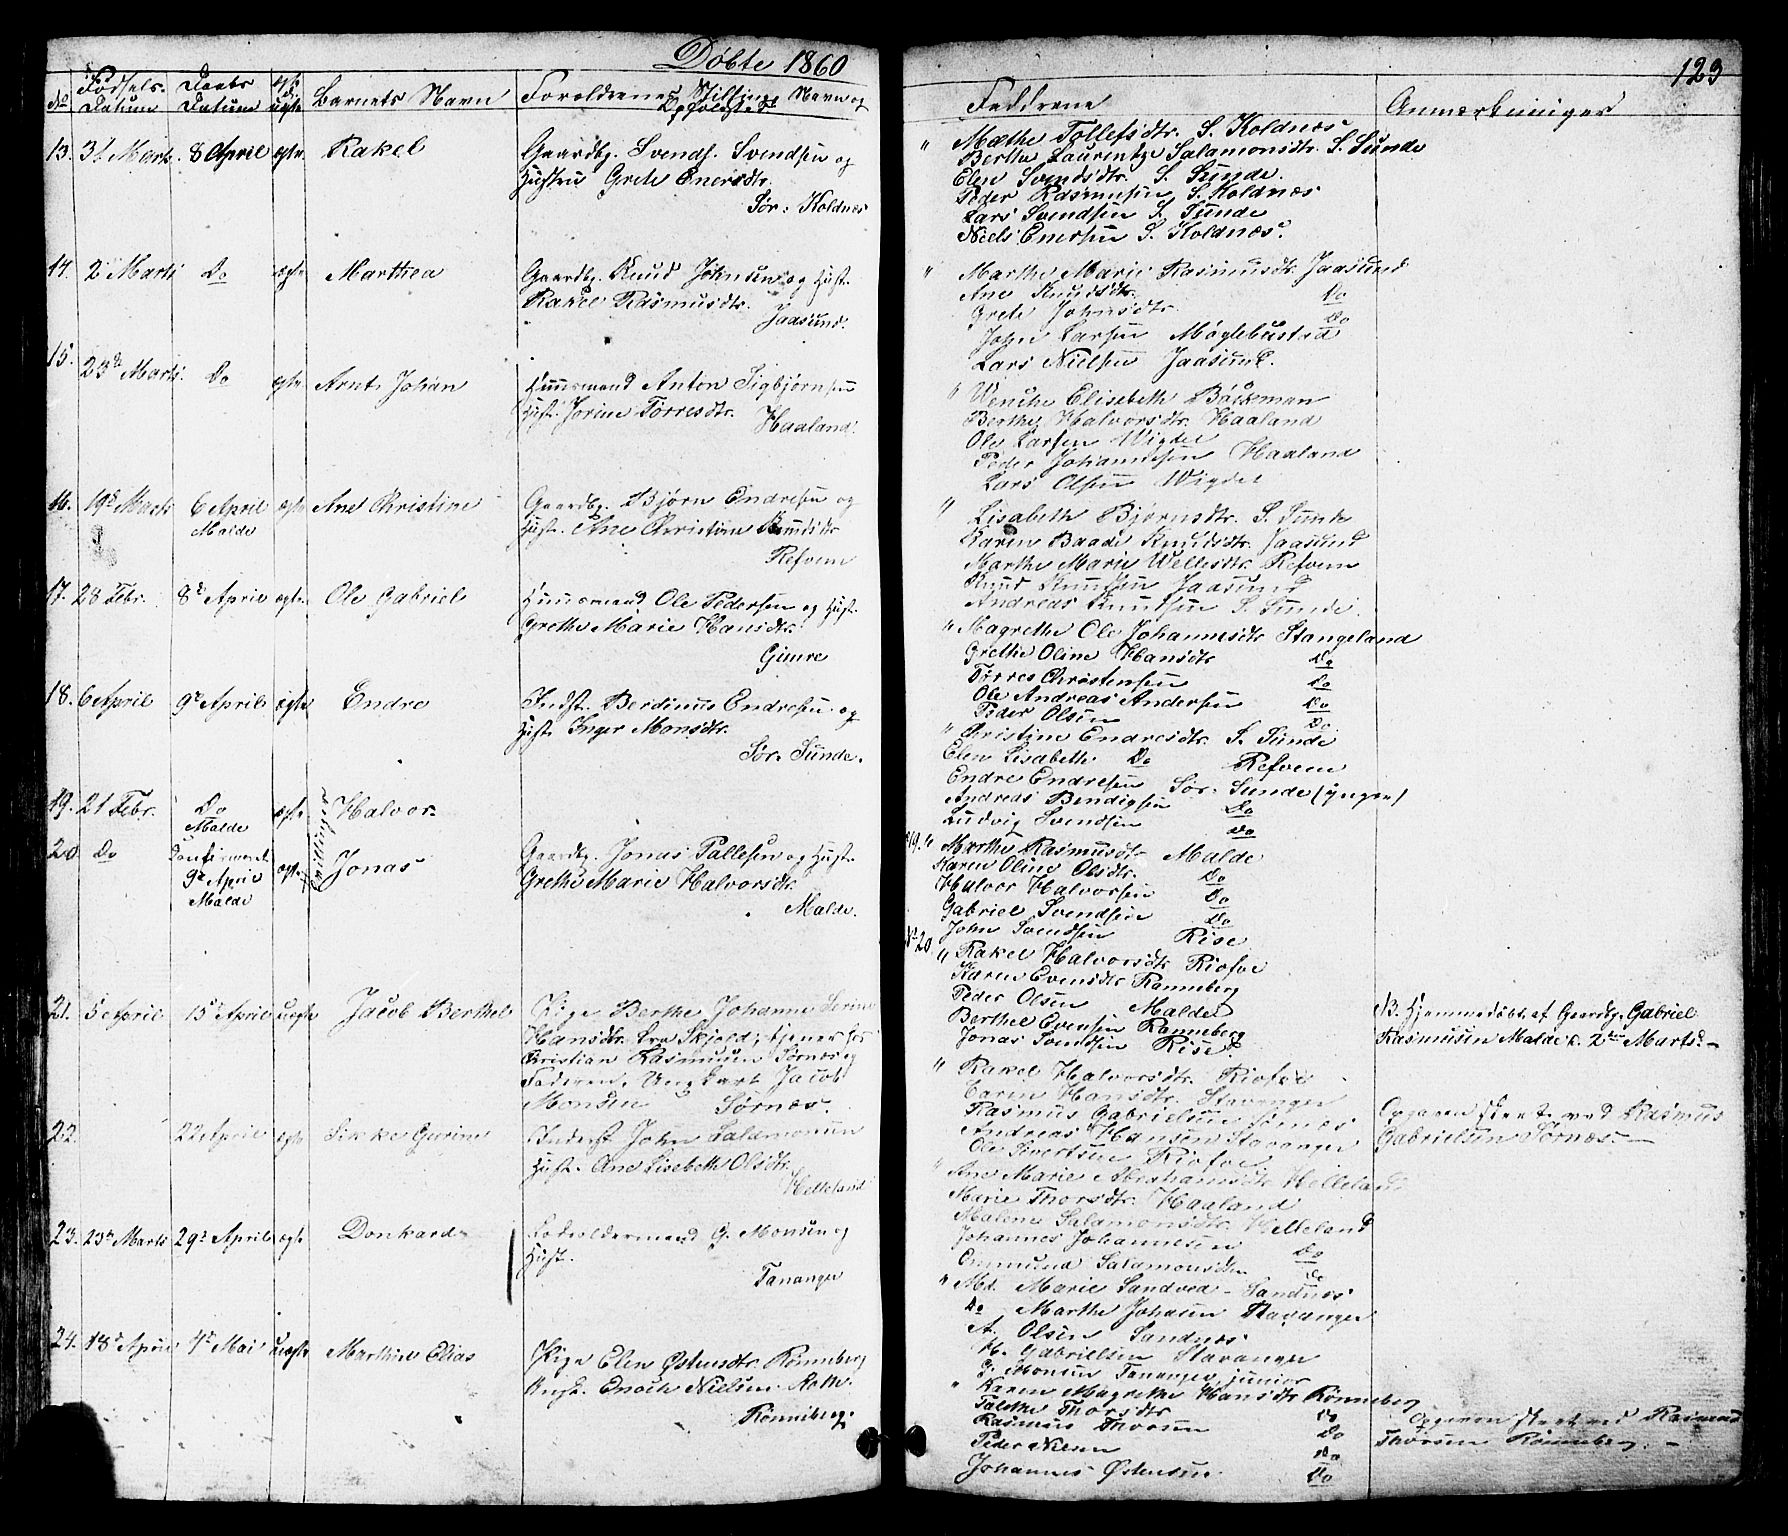 Døbte 1860
123
No
Fødsels-
Datum
Daabs
Datum
Barnets Navn
Forældrenes Stilling Navn og
Faddrene
Anmærkninger
13. 31 Marts 8 April ægte Rakel
Gaardbg. Svend Svendsen og
Hustru Grete Enersdtr.
Sør. Koldnæs
" Marthe Tollefsdtr. S. Koldnæs
Berthe Laurentze Salamonsdtr. S. Sunde
Elen Svendsdtr. S. Sunde.
Peder Rasmussen S. Koldnæs
Lars Svendsen S. Sunde
Niels Enersen S. Koldnæs.
14. 2 Marts Do ægte Marthea
Gaardbg. Knud Johnsen og Hust.
Rakel Rasmusdtr.
Jaasund.
" Marthe Marie Rasmusdtr. Jaasund
Ane Knudsdtr. Do
Grete Johnsdtr. Do
John Larsen Møglebustad
Lars Nielsen Jaasund.
15. 23de Marts Do ægte Arnt Johan
Huusmand Anton Sigbjørnsen
Hust. Jorine Torresdtr.
Haaland.
" Wenche Elisebeth Böckman
Berthe Halvorsdtr. Haaland
Ole Larsen Wigdel
Peder Johannesen Haaland
Lars Olsen Wigdel
16. 19d Marts 6 April ægte Ane Christine
Malde
Gaardbg. Bjørn Endresen og
Hust. Ane Christine Knudsdtr
Refvem
" Lisabeth Bjørnsdtr. S. Sunde
Karen Baade Knudsdtr. Jaasund
Marthe Marie Wellesdtr. Refvem
Knud Knudsen Jaasund
Andreas Knudsen S. Sunde.
17. 28 Febr. 8d April ægte Ole Gabriel
Huusmand Ole Pedersen og Hust.
Grethe Marie Hansdtr.
Gimre
" Magrethe Ole Johannesdtr Stangeland
Grethe Oline Hansdtr Do
Törres Christensen Do
Ole Andreas Andersen Do
Peder Olsen Do
18. 6 April 9d April ægte Endre
Indst. Berdinus Endresen og
Hust. Inger Monsdtr.
Sør. Sunde.
" Christine Endresdtr. S. Sunde
Elen Lisabeth Do Refvem
Endre Endresen Sör. Sunde (yngre)
Andreas Bendigsen Do
Ludvig Svendsen Do
19. 21 Febr. Do ægte Halvor
Malde
Tvillinger
20 Do Confirmeret ægte Jonas
9d April
Malde
Gaardbg. Jonas Pallesen og Hust.
Grethe Marie Halvorsdtr.
Malde.
19. " Marthe Rasmusdtr Malde
Karen Oline Olsdtr. Do
Halvor Halvorsen Do
Gabriel Svendsen Do
John Svendsen Rise
No 20. " Rakel Halvorsdtr Riofve
Karen Evensdtr Ranneberg
Peder Olsen Malde
Berthel Evensen Ranneberg
Jonas Svendsen Rise
N. Hjemmedøbt af Gaardbg. Gabriel
Rasmusen Malde d. 2den Marts.
21. 5 April 15d April uægte Jacob Berthel
Pige Berthe Johanne Serine
Hansdtr. fra Skjold, tjener hos
Christian Rasmusen Sørnæs og
Faderen, Ungkarl Jacob
Monsen Sørnæs.
" Rakel Halvorsdtr. Riofve
Caren Hansdtr. Stavanger
Rasmus Gabrielsen Sörnæs
Andreas Hansen Stavanger
Ole Sivertsen Riofve
Opgaven skeet ved Rasmus
Gabrielsen Sørnæs.
22. 22 April ægte Sikke Gurine
Inderst John Salamonsen
Hust. Ane Lisebeth Olsdtr.
Helleland
" Ane Marie Abrahamsdtr Helleland
Marie Thorsdtr. Haaland
Malene Salamonsdtr. Helleland
Johannes Johannesen Do
Emmund Salamonsdtr Do
23. 23de Marts 29d April ægte Donkard
Lodsoldermand G. Monsen og
Hust.
Tananger
" Md. Marie Sandved Sandnæs
Do Marthe Johasen Stavanger
A. Olsen Sandnæs
H. Gabrielsen Stavanger
G. Monsen Tananger, junior
24. 18d April 4d Mai uægte Marthin Elias
Pige Elen Østensdtr. Rønneberg
Ungk. Enoch Nielsen Roth.
Rønneberg.
" Karen Magrethe Hansdtr Rønneberg
Talethe Thorsdtr Do
Rasmus Thorsen Do
Peder Nielsen Do
Johannes Østensen Do
Opgaven skeet ved Rasmus
Thorsen Rønneberg.